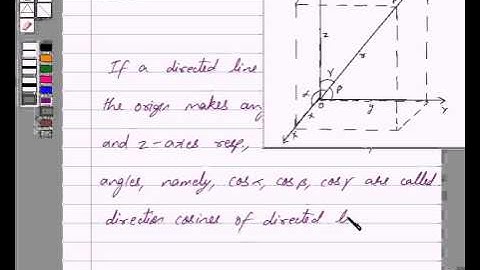 If a directed line
the origin makes an
and z-axes resp,
angles, namely, cosα, cosβ, cosγ are called
direction cosines of directed l
z
r
γ
α
β
O
y
Y
x